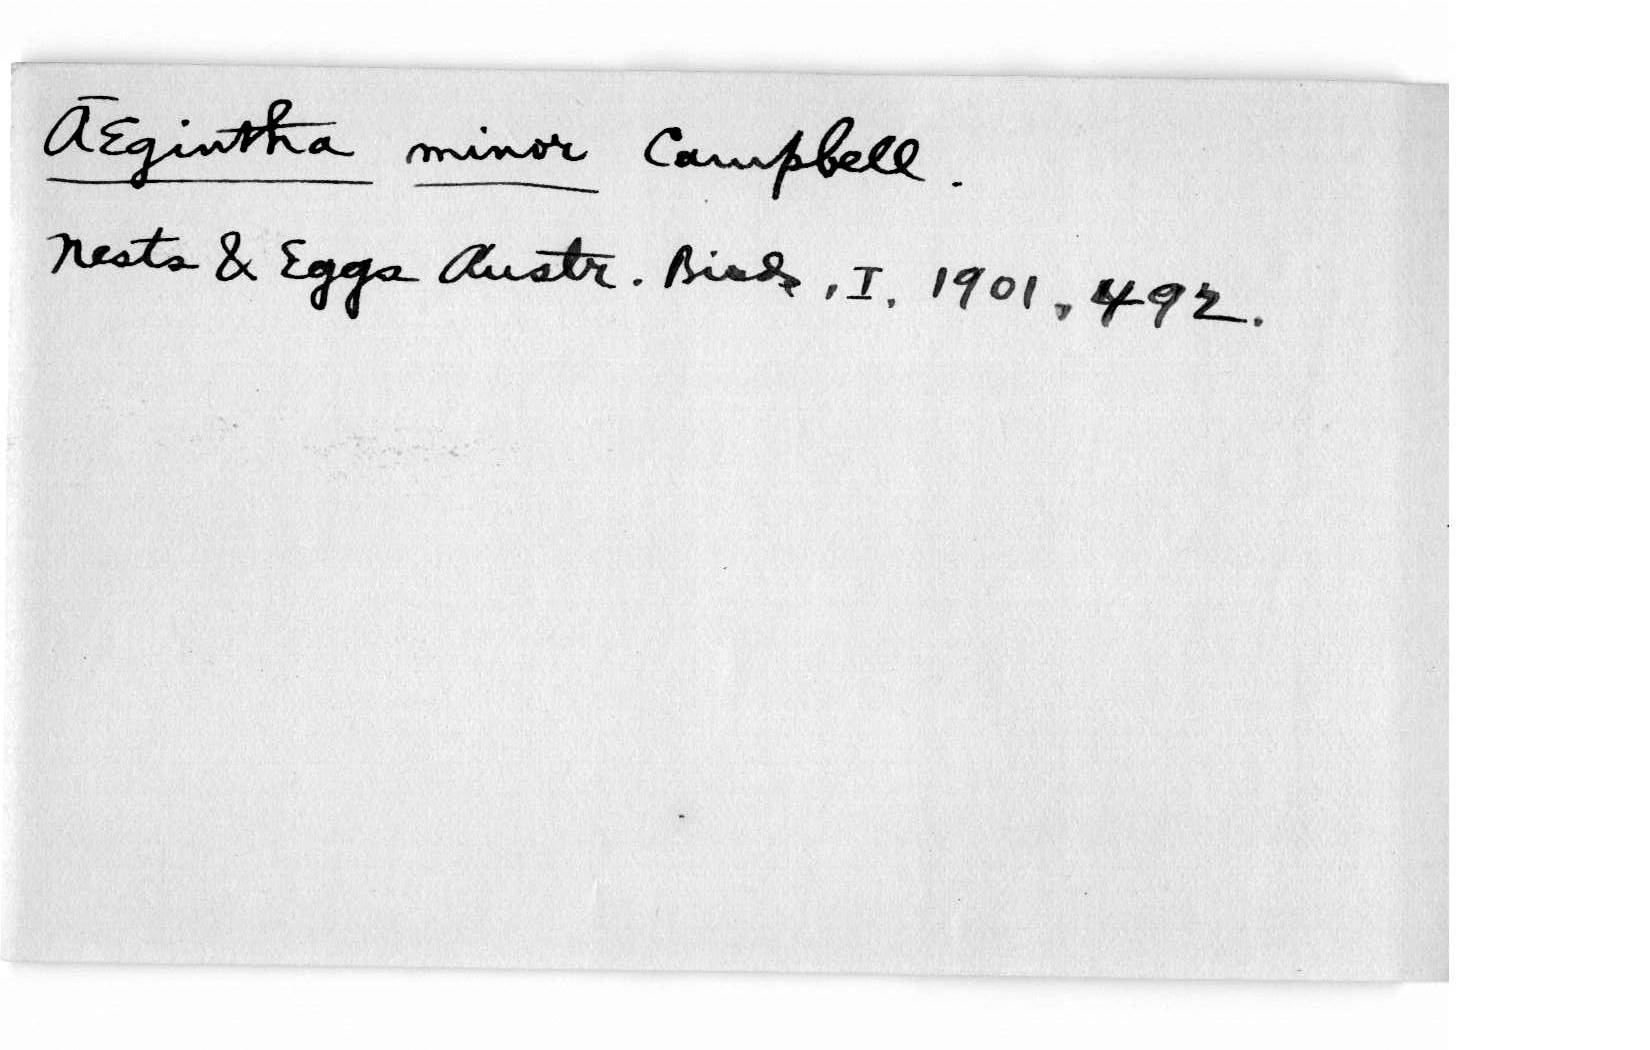 Aegintha minor Campbell.
Nests & Eggs Austr. Birds, I, 1901, 492.